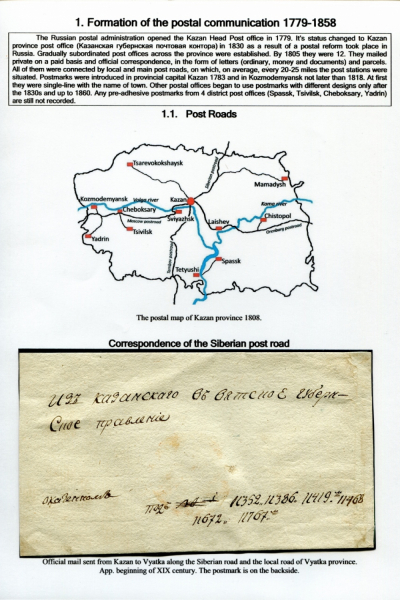 1. Formation of the postal communication 1779-1858
The Russian postal administration opened the Kazan Head Post office in 1779. It's status changed to Kazan
province post office (Казанская губернская почтовая контора) in 1830 as a result of a postal reform took place in
Russia. Gradually subordinated post offices across the province were established. By 1805 they were 12. They mailed
private on a paid basis and official correspondence, in the form of letters (ordinary, money and documents) and parcels.
All of them were connected by local and main post roads, on which, on average, every 20-25 miles the post stations were
situated. Postmarks were introduced in provincial capital Kazan 1783 and in Kozmodemyansk not later than 1818. At first
they were single-line with the name of town. Other postal offices began to use postmarks with different designs only after
the 1830s and up to 1860. Any pre-adhesive postmarks from 4 district post offices (Spassk, Tsivilsk, Cheboksary, Yadrin)
are still not recorded.
1.1. Post Roads
Tsarevokokshaysk
Siberian postroad
Mamadysh
Kozmodemyansk
Volga river
Kazan
Kama river
Cheboksary
Sviyazhsk
Chistopol
Moscow postroad
Laishev
Orenburg postroad
Tsivilsk
Yadrin
Spassk
Tetyushi
The postal map of Kazan province 1808.
Correspondence of the Siberian post road
Изъ казанскаго въ вятское губерн-
ское правленіе
11352. 11386. 11419. 11468
11672. 11767.
Official mail sent from Kazan to Vyatka along the Siberian road and the local road of Vyatka province.
App. beginning of XIX century. The postmark is on the backside.